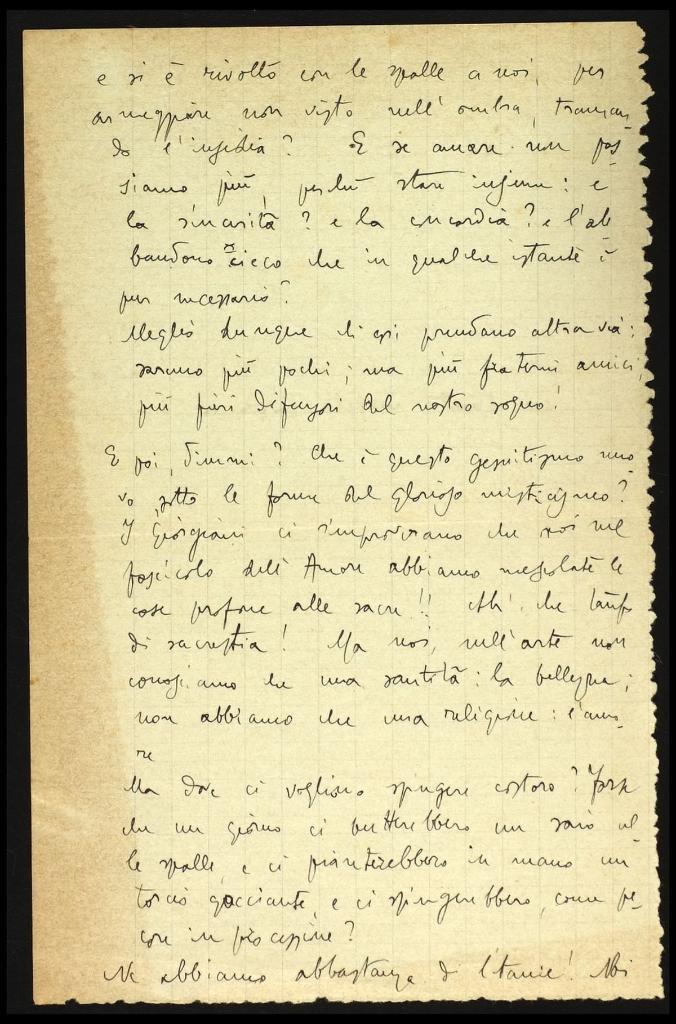 e si è rivolto con le spalle a noi, per
armeggiare non visto nell' ombra, traman-
do l'insidia? E se amare non pos
siamo più, perché stare insieme: e
la sincerità? e la concordia? e l'ab
bandono cieco che in qualche istante è
pur necessario?
Meglio dunque ch essi prendano altra via:
saremo più pochi; ma più fraterni amici,
più fieri difensori del nostro sogno!
E poi, dimmi? Che è questo gesuitismo nuo
vo sotto le forme del glorioso misticismo?
I Giorgiani ci rimproverano che noi nel
fascicolo dell' Amore abbiamo mescolate le
cose profane alle sacre!! Ah! che tanfo
di sacrestia! Ma noi, nell'arte non
conosciamo che una santità: la bellezza;
non abbiamo che una religione: l'amo-
re
Ma dove ci vogliono spingere costoro? Forse
che un giorno ci butterebbero un saio al
le spalle, e ci pianterebbero in mano un
torcio gocciante, e ci spingerebbero, come pe-
core in processione?
Ne abbiamo abbastanza di litanie! Noi